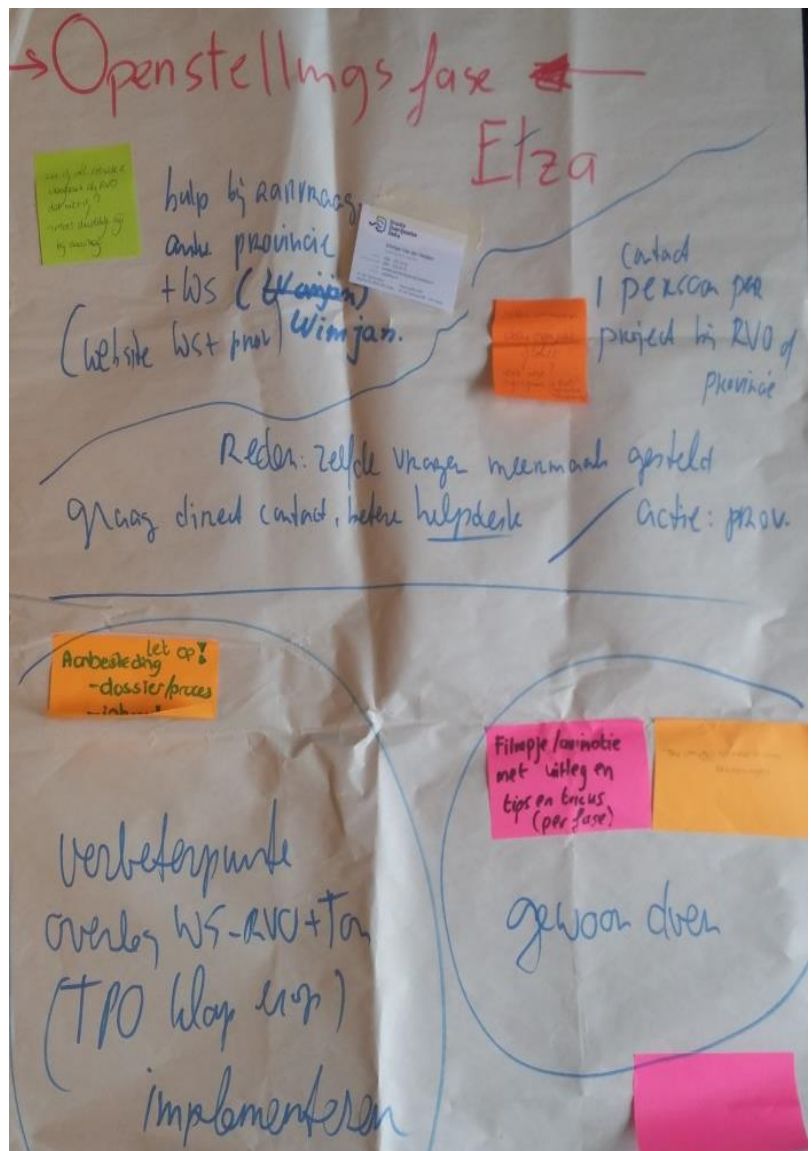 → Openstellingsfase ←
Etza
hulp bij aanvraag
anke provincie
+WS (Wimjan)
Wimjan.
(website WS + prov)
Contact
1 persoon per
project bij RVO of
provincie
Reden: zelfde vragen meermaals gesteld
graag direct contact, betere helpdesk
actie: prov.
let op!
Aanbesteding
-dossier/proces
-inhoud
Filmpje/animatie
met uitleg en
tips en trucus
(per fase)
verbeterpunte
overleg WS-RVO+Ton
(TPO klap erop)
implementeren
gewoon doen